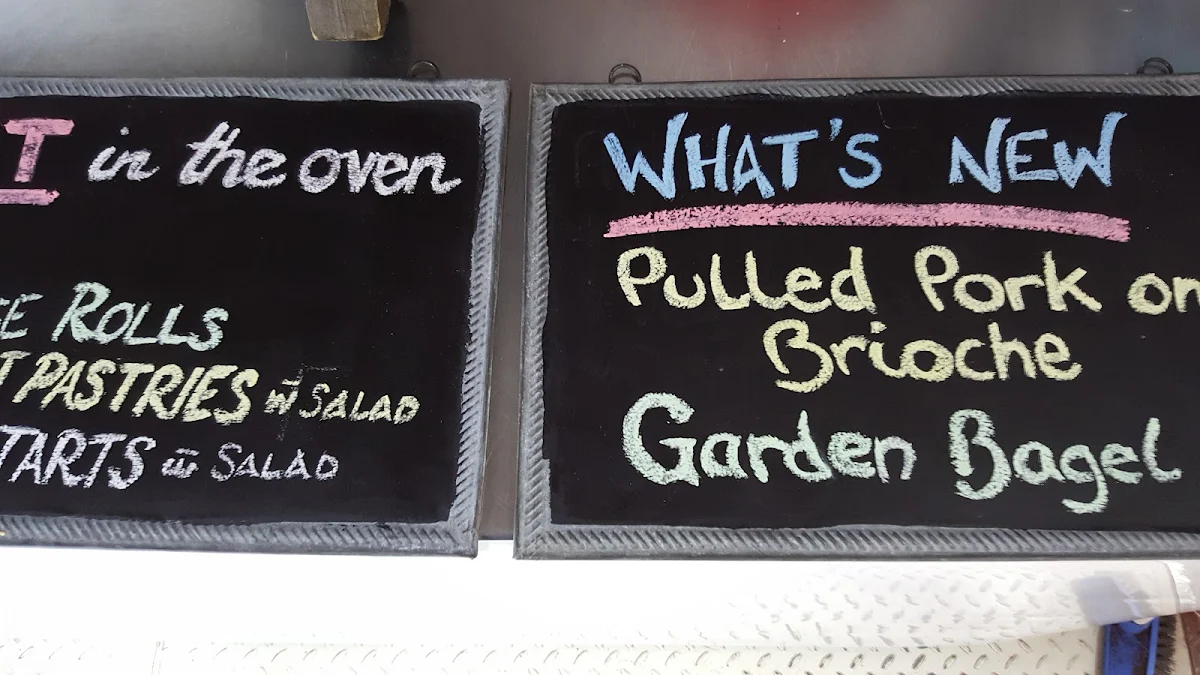 T in the oven
EE ROLLS
T PASTRIES w SALAD
TARTS w SALAD
WHAT'S NEW
Pulled Pork on
Brioche
Garden Bagel